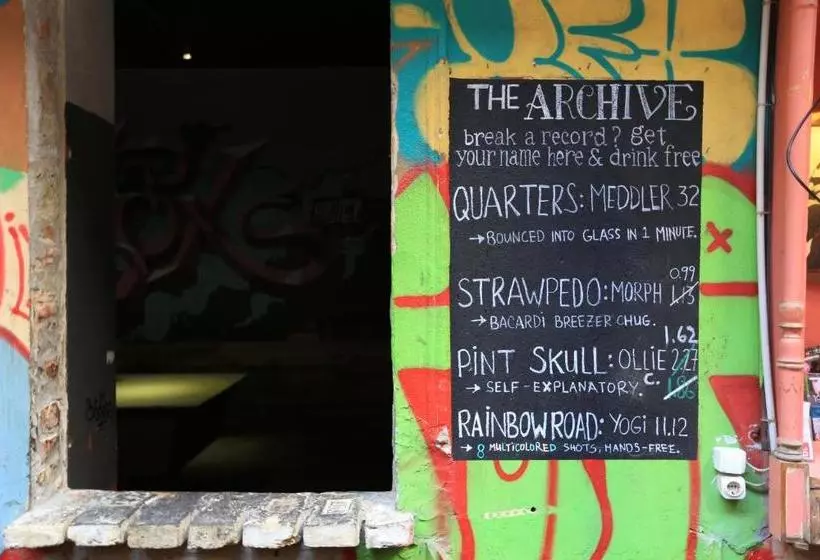 THE ARCHIVE
break a record? get
your name here & drink free
QUARTERS: MEDDLER 32
→BOUNCED INTO GLASS IN 1 MINUTE.
0.99
STRAWPEDO: MORPH 1.13
→ BACARDI BREEZER CHUG.
1.62
PINT SKULL: OLLIE 2.27
→ SELF-EXPLANATORY. C. 1.86
RAINBOWROAD: YOGI 11.12
→ 8 MULTICOLORED SHOTS, HANDS-FREE.